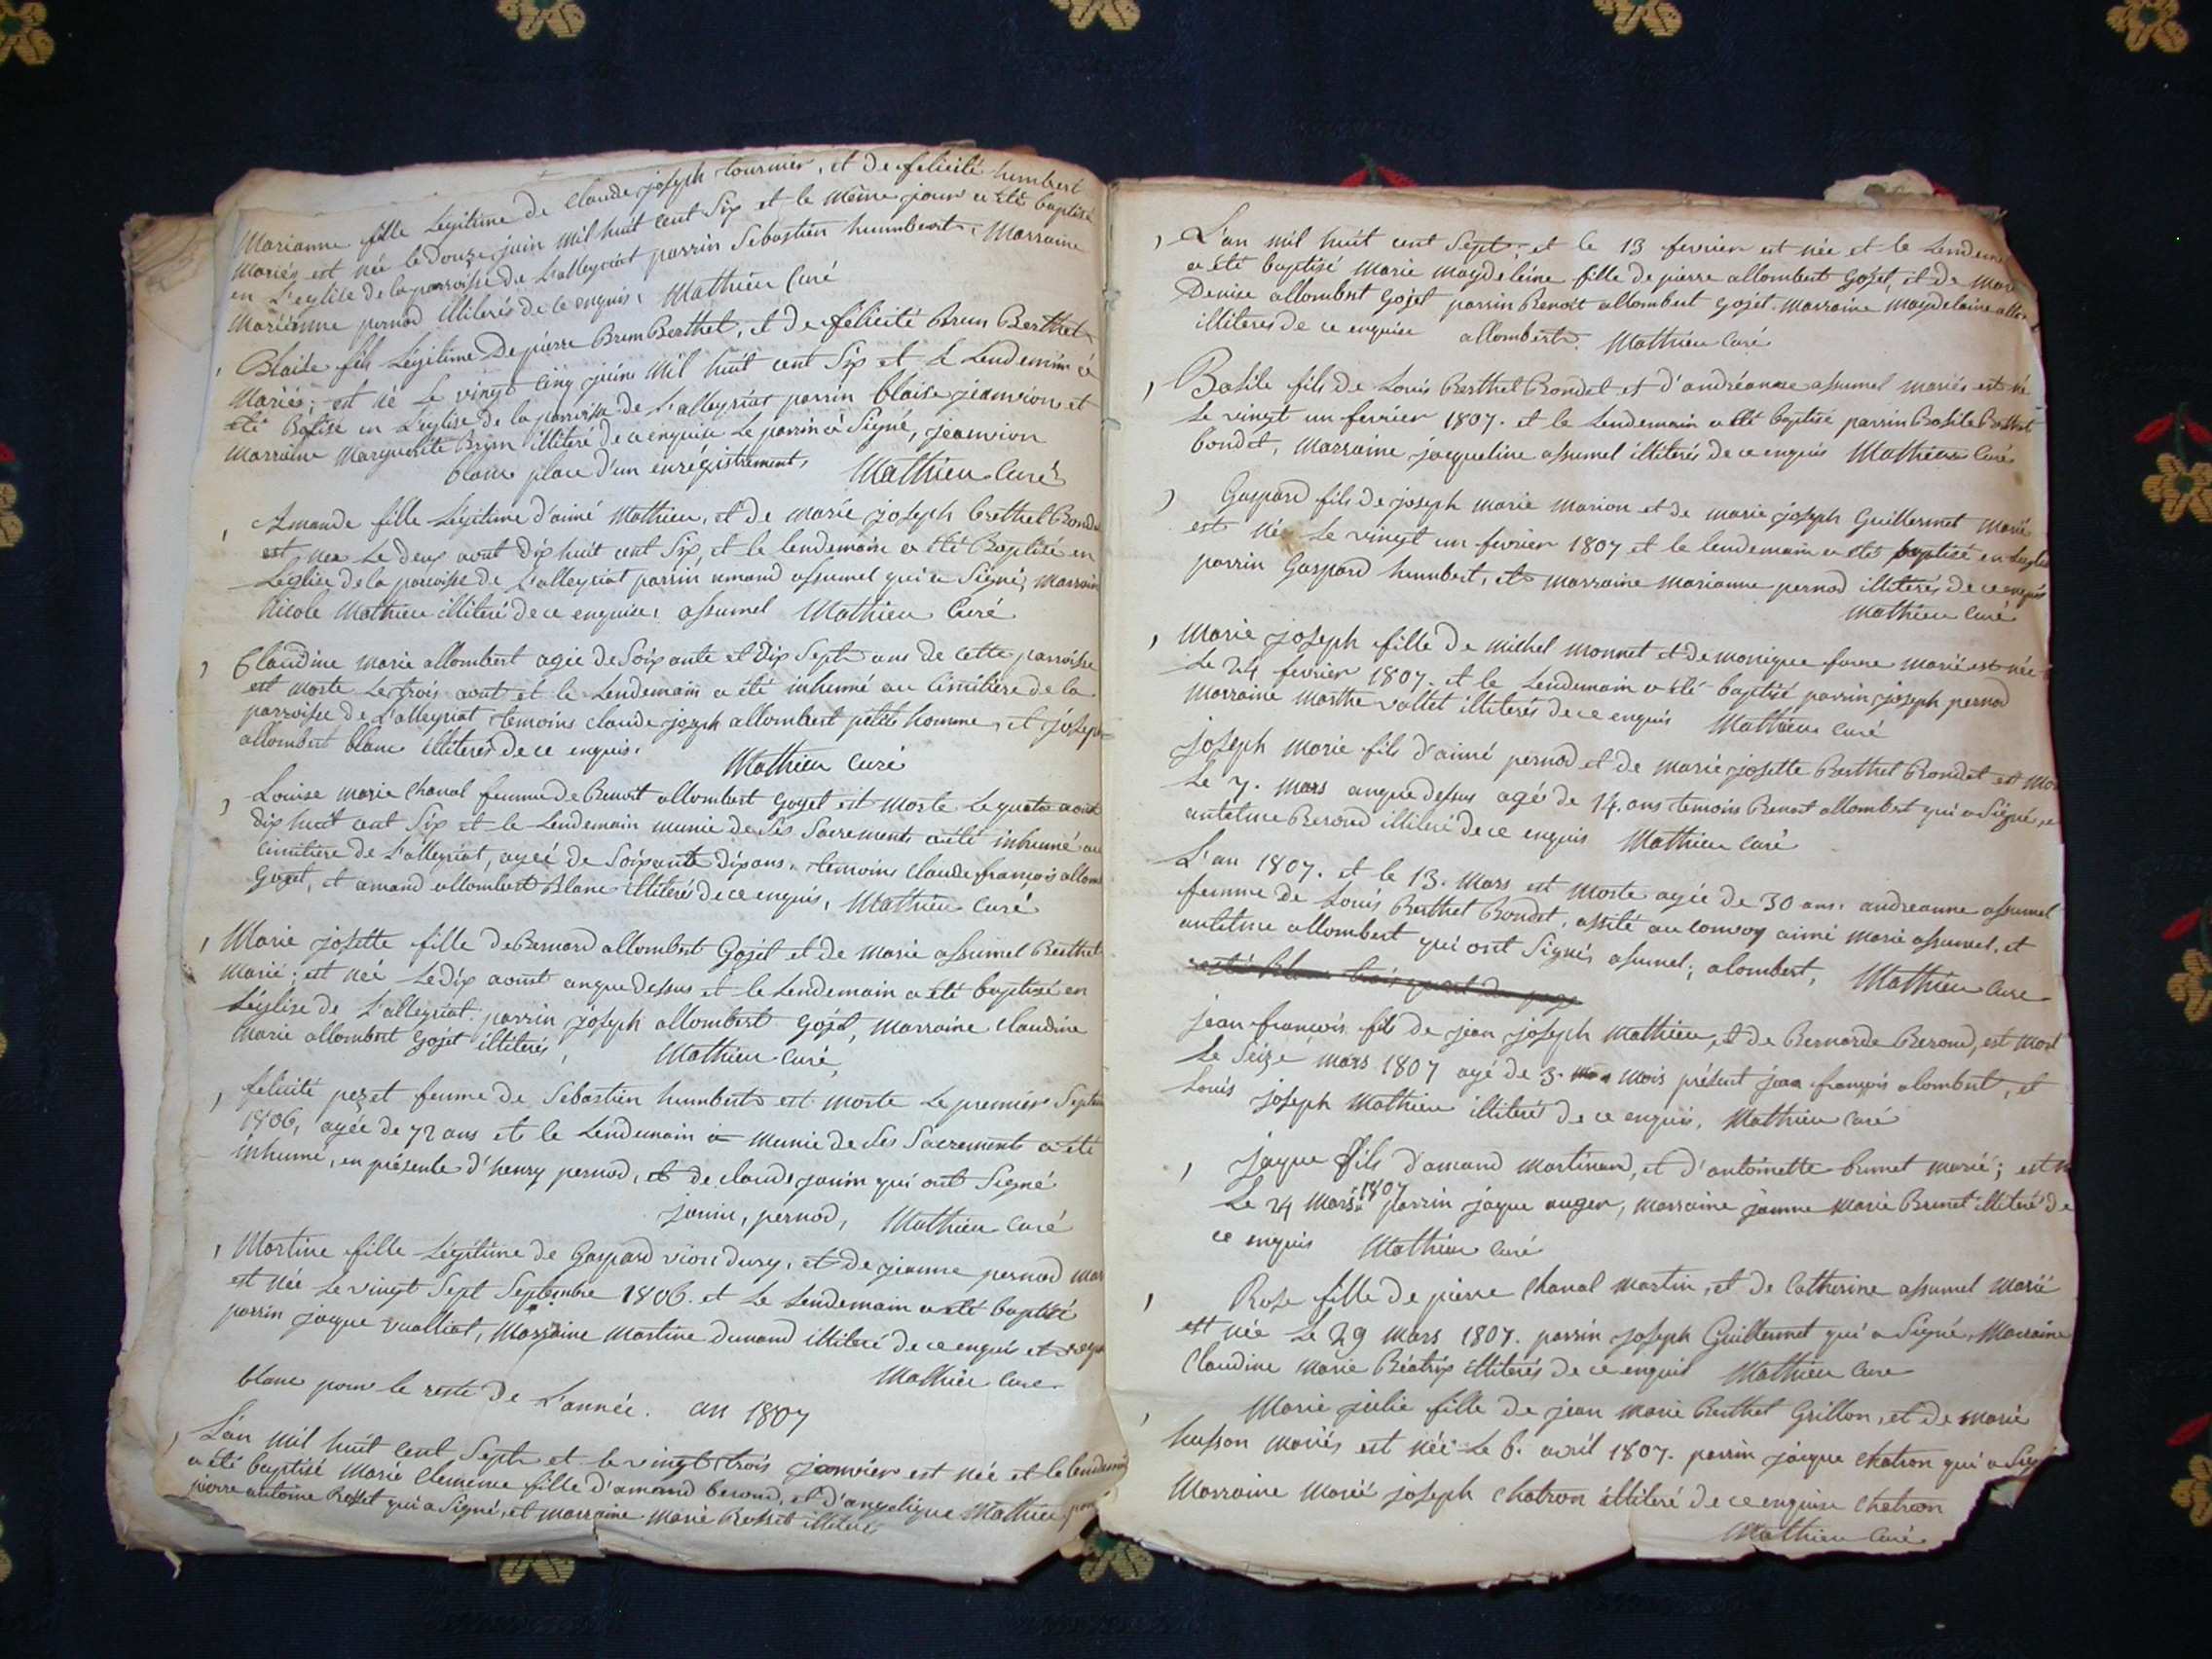 Marianne fille Legitime de Claude joseph tournier, et de felicité humbert
Mariés est née le douze juin mil huit cent Six et le même jour a été baptisé
en L'eglise de la parroisse de L'alleyriat parrin Sebastien humbert, Marraine
Marianne pernod illiterés de ce enquis, Mathieu Curé
Blaise fils Légitime De pierre Brun Berthet, et de felicité Brun Berthet
Mariés; est né Le vingt cinq juin Mil huit cent Six et le Lendemin à
été Batisé en L'eglise de la parroisse de L'alleyriat parrin blaise jeanvion et
Marraine Marguerite Brun illiteré de ce enquise Le parrin à Signé, jeanvion
blanc place d'un enrégistrement, Mathieu Curé
Amande fille Légitime d'aimé Mathieu, et de marie joseph berthet Bondet
est née Le deux aout dix huit cent Six, et le lendemain a été Baptisé en
L'eglise de la parroisse de L'alleyriat parrin amand assumel qui a Signé, Marraine
Nicole Mathieu illiteré de ce enquise, assumel Mathieu Curé
Claudine marie allombert agée de Soixante et Dix Sept ans de cette parroisse
est morte Le trois aout et le Lendemain a été inhumé au Cimitière de la
parroisse de L'alleyriat temoins claude joseph allombert petit homme, et joseph
allombert blanc illiterés de ce enquis. Mathieu Curé
Louise marie Chanal femme de Benoit allombert Goget est morte Le quatre aout
dix huit cent Six et le Lendemain munie de Ses Sacrements a été inhumé au
Cimitiere de L'alleyriat, agée de Soixante dix ans. temoins claude françois allom
Goget, et amand allombert Blanc illiterés de ce enquis, Mathieu Curé
Marie josette fille de Bernard allombert Gojet et de Marie assumel Berthet
Marié; est née Le dix aout anque dessus et le Lendemain a été baptisé en
L'église de L'alleyriat parrin joseph allombert Gojet, Marraine Claudine
Marie allombert Gojet illiterés, Mathieu Curé
felicité pezet femme de Sebastien humbert est morte Le premier Septem
1806, agée de 72 ans et le Lendemain à Munie de Ses Sacrements a été
inhumé, en présente d'henry pernod, et de claude janin qui ont Signé
janin, pernod, Mathieu Curé
Martine fille Légitime de Gaspard vion dury, et de jeanne pernod mar
est née Le vingt Sept Septembre 1806. et le Lendemain a été baptisé
parrin jaque vualliat, Marraine Martine durand illiteré de ce enquis et
Mathieu Curé
blanc pour le reste de L'année. an 1807
L'an mil huit cent Sept et le vingt trois janvier est née et le lendemin
a été baptisé Marie Clemence fille d'amand beroud, et d'angelique Mathieu parr
pierre antoine Rosset qui a Signé, et marraine Marie Rosset illiteré
L'an mil huit cent Sept, et le 13 fevrier est née et le Lendem
a été baptisé Marie Magdeleine fille de pierre allombert Gojet, et de Mar
Denise allombert Gojet parrin Benoit allombert Gojet. Marraine Magdelaine allo
illiteres de ce enquise allombert. Mathieu Curé
Basile fils de Louis Berthet Bondet et d'andréanne assumel mariés est né
Le vingt un fevrier 1807. et le Lendemain a été baptisé parrin Basile Berthet
bondet, Marraine jacqueline assumel illiterés de ce enquis Mathieu Curé
Gaspard fils de joseph marie Marion et de marie joseph Guillermet marié
est né Le vingt un fevrier 1807 et le lendemain a été baptisé en L'eglise
parrin Gaspard humbert, et marraine Marianne pernod illiterés de ce enquis
Mathieu Curé
Marie joseph fille de Michel monnet et de monique favre marié est née
Le 24 fevrier 1807. et le Lendemain a été baptisé parrin joseph pernod
Marraine Marthe vallet illiterés de ce enquis Mathieu Curé
joseph Marie fils d'aimé pernod et de marie josette Berthet Bondet est mo
Le 7. Mars anque dessus agé de 14. ans temoins Benoit allombert qui a Signé, e
antelme Beroud illiteré de ce enquis Mathieu Curé
L'an 1807. et le 13. Mars est morte agée de 30 ans. andreanne assumel
femme de Louis Berthet Bondet, assité au convoy aimé marie assumel, et
antelme allombert qui ont Signés assumel, alombert, Mathieu Curé
jean françois fils de jean joseph Mathieu, et de Bernarde Beroud, est mort
Le Seize mars 1807 agé de 3. Mois présent jean françois alombert, et
Louis joseph Mathieu illiterés de ce enquis, Mathieu Curé
jaque fils d'amand Martinand, et d'antoinette brunet marié; est n
Le 24 Mars 1807 parrin jaque auger, marraine jeanne Marie Brunet illiteré de
ce enquis Mathieu Curé
Rose fille de pierre Chanal Martin, et de Catherine assumel Marié
est née Le 29 Mars 1807. parrin joseph Guillermet qui a Signé, Marraine
Claudine Marie Béatrix illiterés de ce enquis Mathieu Cure
Marie julie fille de jean Marie Berthet Grillon, et de Marie
husson Mariés est née Le 6. avril 1807. parrin jaque Chatron qui a Sig
Marraine Marie joseph Chatron illiteré de ce enquise Chatron
Mathieu Curé